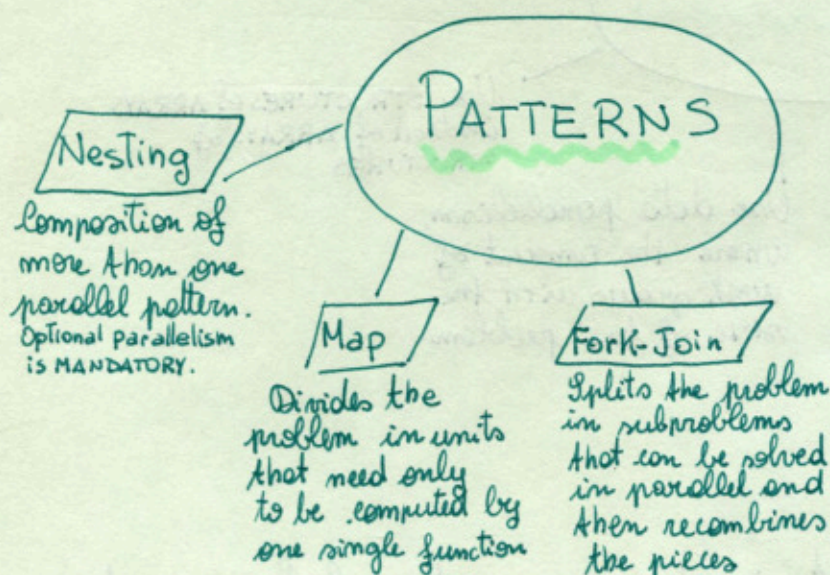 PATTERNS
Nesting
Composition of
more than one
parallel pattern.
Optional parallelism
is MANDATORY.
Map
Divides the
problem in units
that need only
to be computed by
one single function
Fork-Join
Splits the problem
in subproblems
that can be solved
in parallel and
then recombines
the pieces